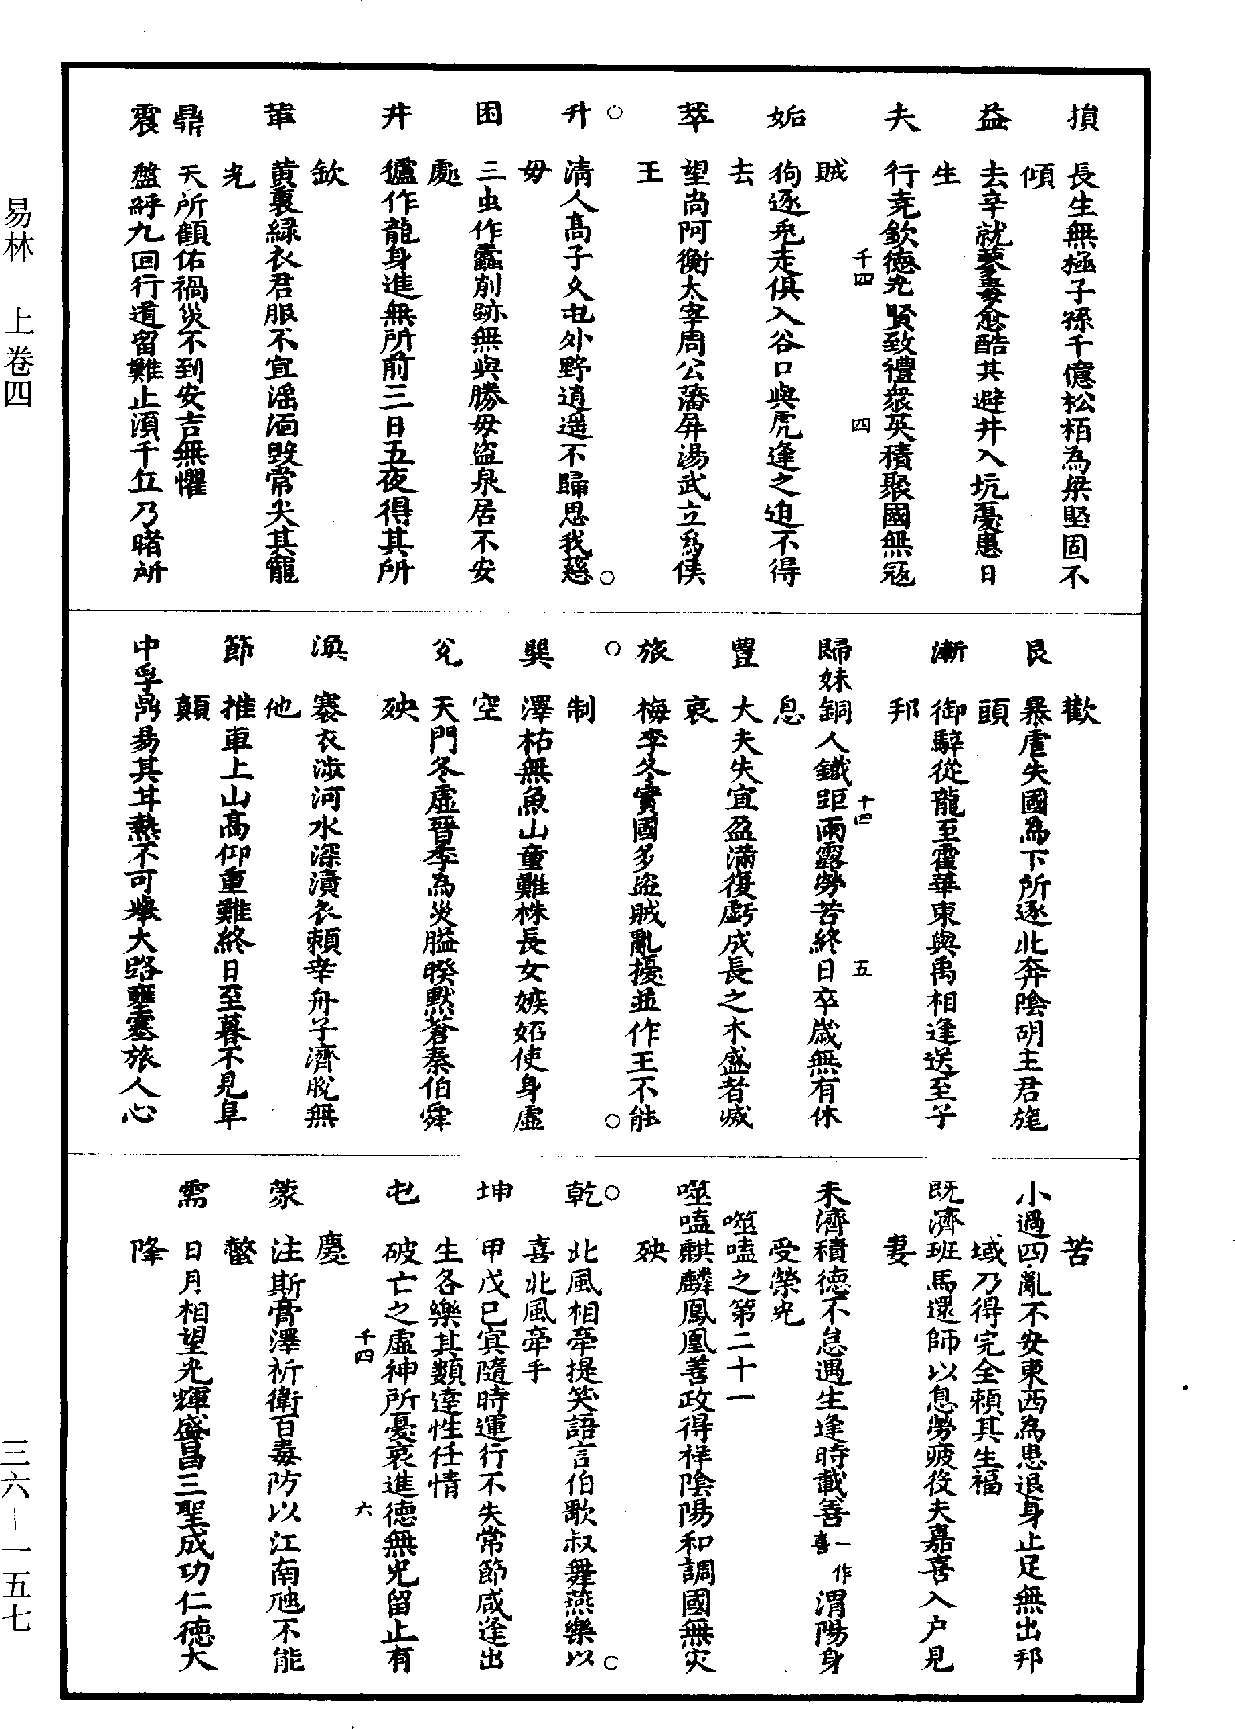 損　長生無極子孫千億松栢為梁堅固不
傾
益　去辛就蓼毒愈酷其避井入坑憂患日
生
夬　行克欽德光賢致禮衆英積聚國無寇
賊
千四　四
姤　狗逐兎走俱入谷口與虎逢之迫不得
去
萃　望尚阿衡太宰周公藩屏湯武立為侯
王
升　清人高子久屯外野逍遥不歸思我慈
毋
困　三虫作蠱削跡無與勝毋盜泉居不安
處
井　躽作龍身進無所前三日五夜得其所
歆
革　黄裏緑衣君服不宜滛湎毀常失其寵
光
鼎　天所顧佑禍災不到安吉無懼
震　盤紆九回行道留難止須千丘乃睹所
歡
艮　暴虐失國為下所逐北奔陰胡主君旄
頭
漸　御騂從龍至霍華東與禹相逢送至于
邦
歸妹　銅人鐵距雨露勞苦終日卒歲無有休
息
十四　五
豐　大夫失宜盈滿復虧成長之木盛者減
衰
旅　梅李冬實國多盜賊亂擾並作王不能
制
巽　澤枯無魚山童難株長女嫉妬使身虛
空
兊　天門冬虛晉季為災膉暌黙蒼秦伯舜
殃
渙　褰衣涉河水深漬衣頼幸舟子濟脫無
他
節　推車上山高仰重難終日至暮不見阜
顛
中孚　鼎易其耳熱不可擧大路壅塞旅人心
苦
小過　四亂不安東西為患退身止足無出邦
域乃得完全頼其生福
既濟　班馬還師以息勞疲役夫嘉喜入户見
妻
未濟　積德不怠遇生逢時載善一作喜渭陽身
受榮光
噬嗑之第二十一
噬嗑　麒麟鳳凰善政得祥陰陽和調國無灾
殃
乾　北風相牽提笑語言伯歌叔舞燕樂以
喜北風牽手
坤　甲戊已㝠隨時運行不失常節咸逢出
生各樂其類達性任情
千四　六
屯　破亡之虛神所憂哀進德無光留止有
慶
蒙　注斯膏澤祈衛百毒防以江南虺不能
螫
需　日月相望光輝盛昌三聖成功仁德大
降
易林　上卷四
三六－一五七